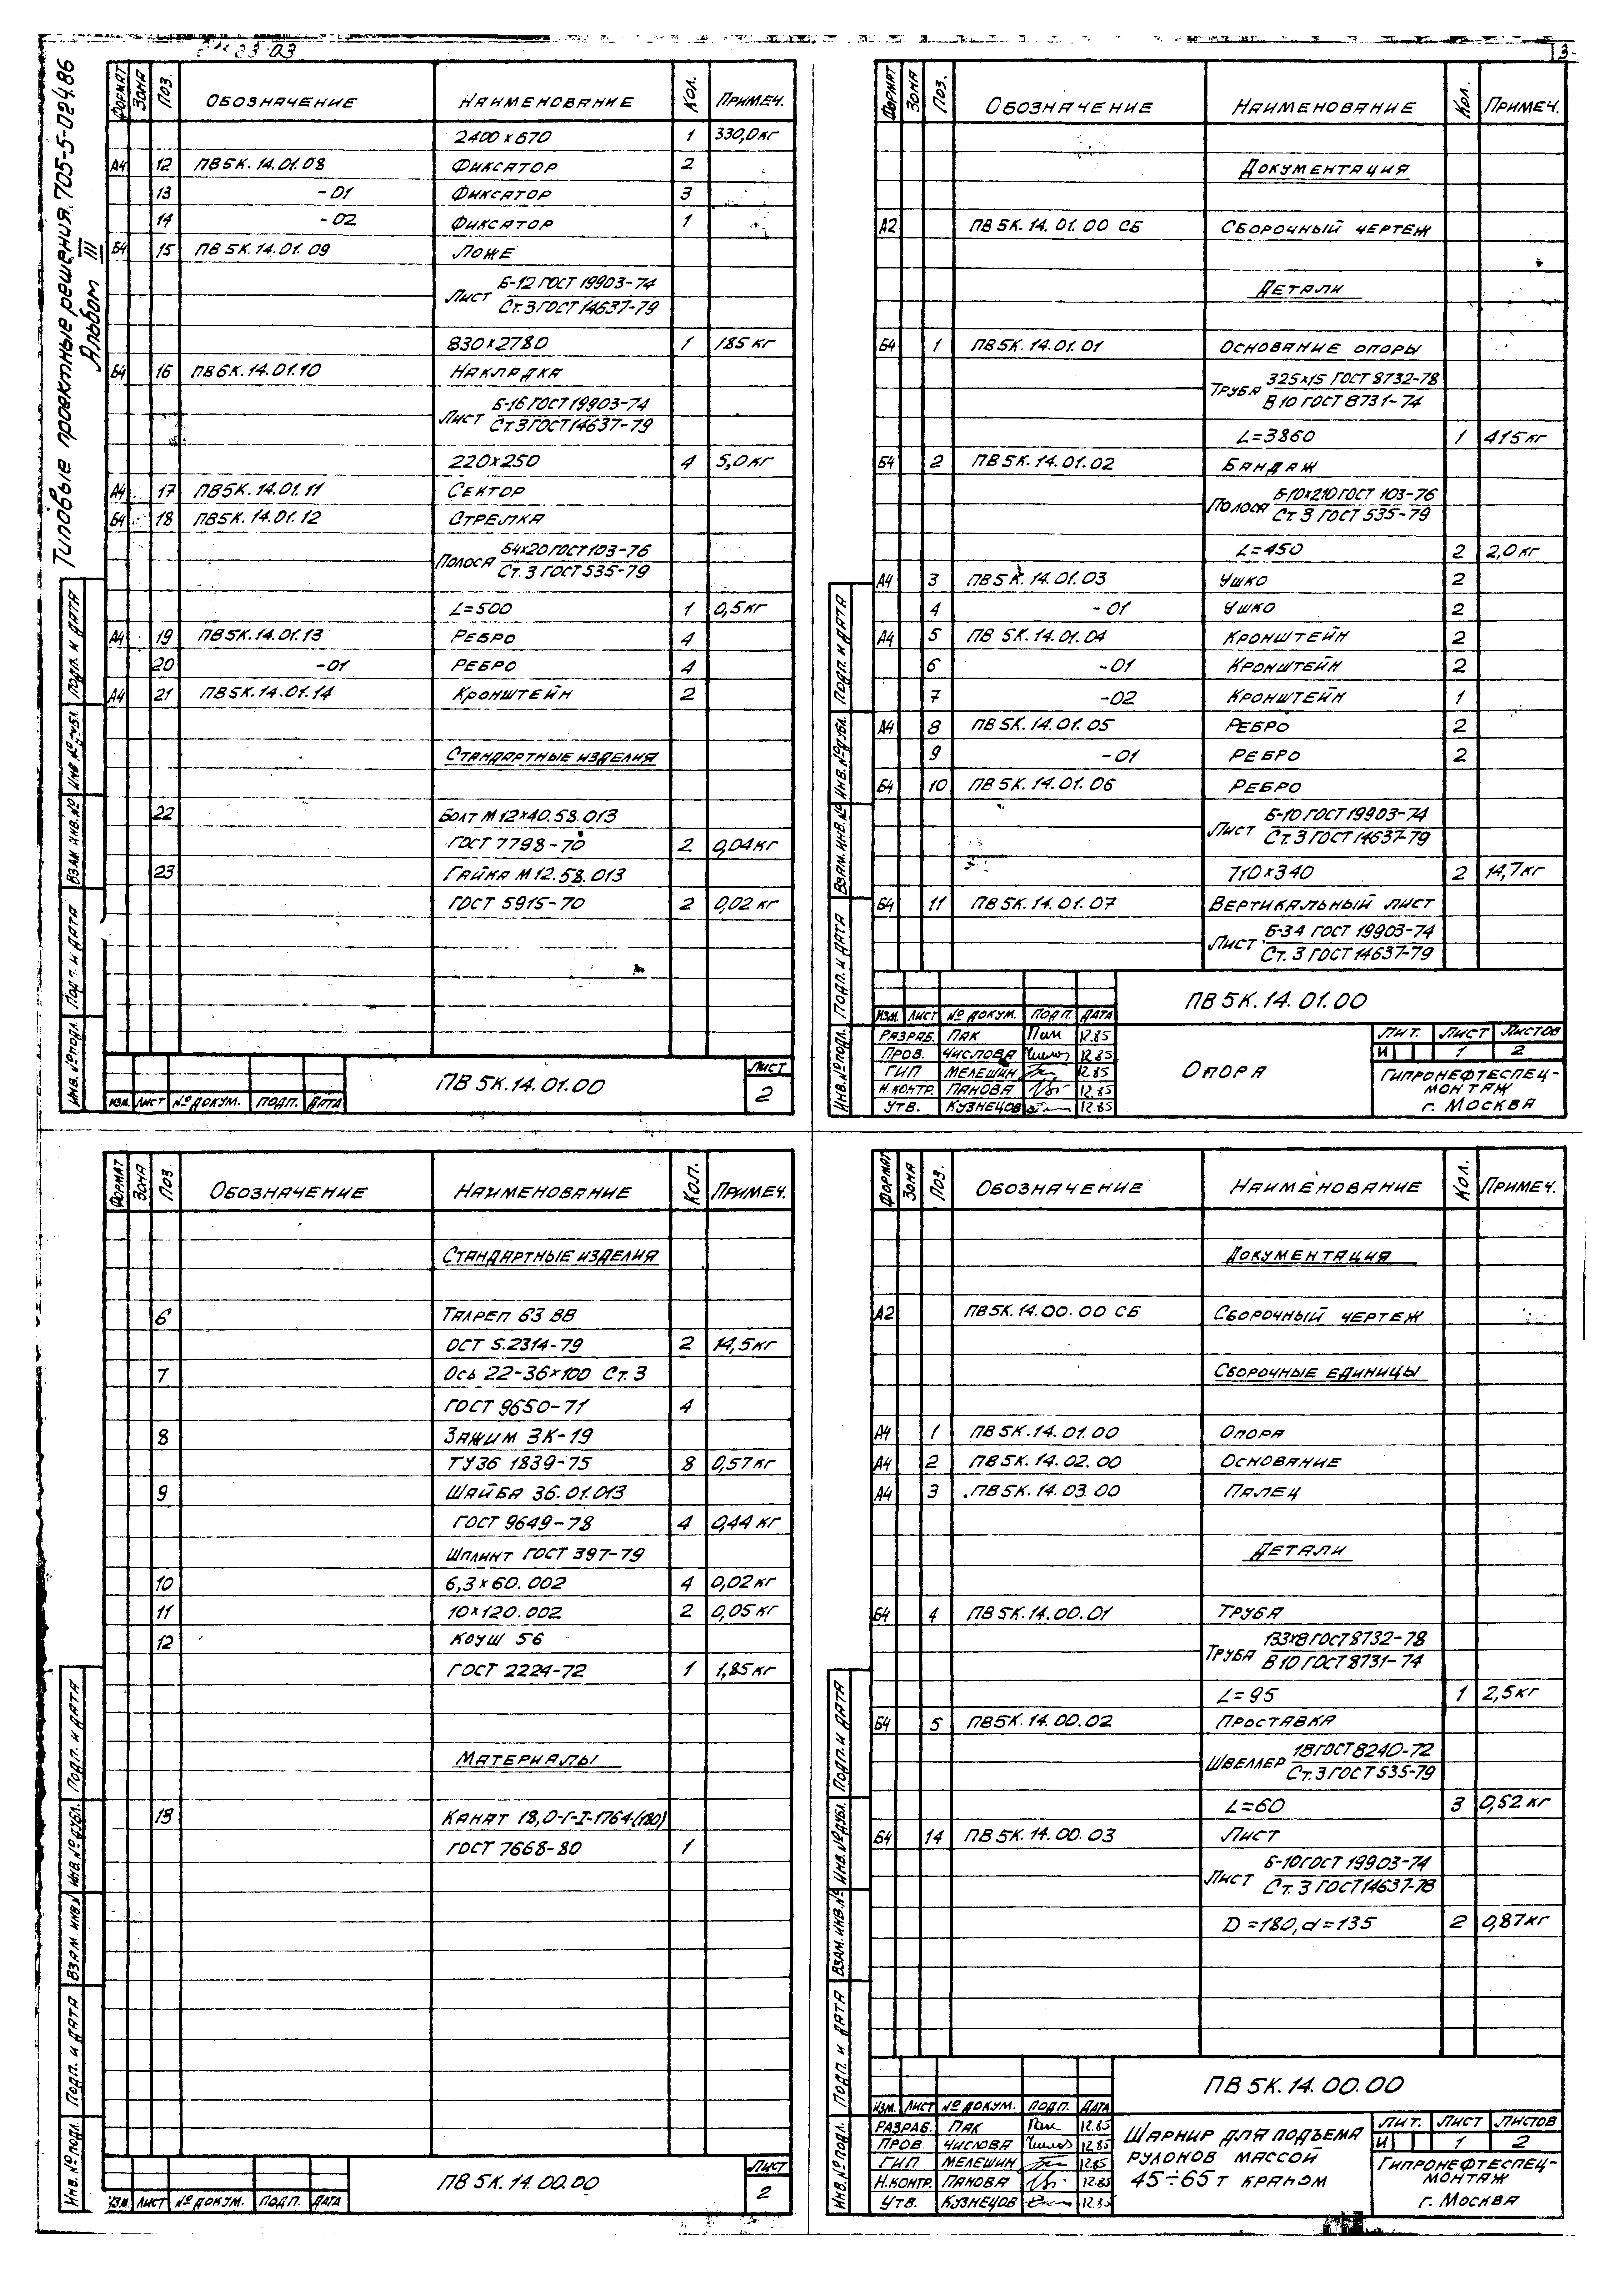 Типовые проектные решения. 705-5-024.86
Альбом III
3
Формат Зона Поз. Обозначение Наименование Кол. Примеч.
2400×670 1 330,0кг
А4 12 ПВ5К.14.01.08 Фиксатор 2
13 -01 Фиксатор 3
14 -02 Фиксатор 1
Б4 15 ПВ5К.14.01.09 Ложе
Лист Б-12 ГОСТ 19903-74
Ст.3 ГОСТ 14637-79
830×2780 1 185 кг
Б4 16 ПВ6К.14.01.10 Накладка
Лист Б-16 ГОСТ 19903-74
Ст.3 ГОСТ 14637-79
220×250 4 5,0кг
А4 17 ПВ5К.14.01.11 Сектор
Б4 18 ПВ5К.14.01.12 Стрелка
Полоса Б4×20 ГОСТ 103-76
Ст.3 ГОСТ 535-79
L=500 1 0,5кг
А4 19 ПВ5К.14.01.13 Ребро 4
20 -01 Ребро 4
А4 21 ПВ5К.14.01.14 Кронштейн 2
Стандартные изделия
22 Болт М12×40.58.013
ГОСТ 7798-70 2 0,04кг
23 Гайка М12.58.013
ГОСТ 5915-70 2 0,02 кг
Инв.№подл. Подп. и дата Взам инв.№ Инв.№дубл. Подп. и дата
Изм. Лист №докум. Подп. Дата
ПВ 5К.14.01.00
Лист
2
Формат Зона Поз. Обозначение Наименование Кол. Примеч.
Документация
А2 ПВ 5К.14.01.00 СБ Сборочный чертеж
Детали
Б4 1 ПВ5К.14.01.01 Основание опоры
Труба 325×15 ГОСТ 8732-78
В 10 ГОСТ 8731-74
L=3860 1 415кг
Б4 2 ПВ5К.14.01.02 Бандаж
Полоса Б-10×210 ГОСТ 103-76
Ст.3 ГОСТ 535-79
L=450 2 2,0кг
А4 3 ПВ5К.14.01.03 Ушко 2
4 -01 Ушко 2
А4 5 ПВ 5К.14.01.04 Кронштейн 2
6 -01 Кронштейн 2
7 -02 Кронштейн 1
А4 8 ПВ5К.14.01.05 Ребро 2
9 -01 Ребро 2
Б4 10 ПВ5К.14.01.06 Ребро
Лист Б-10 ГОСТ 19903-74
Ст.3 ГОСТ 14637-79
710×340 2 14,7кг
Б4 11 ПВ5К.14.01.07 Вертикальный лист
Лист Б-34 ГОСТ 19903-74
Ст.3 ГОСТ 14637-79
Инв.№подл. Подп. и дата Взам.инв.№ Инв.№дубл. Подп. и дата
ПВ 5К.14.01.00
Изм. Лист № докум. Подп. Дата
Разраб. Пак 12.85
Пров. Числова 12.85
ГИП Мелешин 12.85
Н.контр. Панова 12.85
Утв. Кузнецов 12.85
Опора
Лит. Лист Листов
И 1 2
Гипронефтеспец-
монтаж
г. Москва
Формат Зона Поз. Обозначение Наименование Кол. Примеч.
Стандартные изделия
6 Талреп 63 ВВ
ОСТ 5.2314-79 2 14,5кг
7 Ось 22-36×100 Ст.3
ГОСТ 9650-71 4
8 Зажим ЗК-19
ТУ36 1839-75 8 0,57кг
9 Шайба 36.01.013
ГОСТ 9649-78 4 0,44 кг
Шплинт ГОСТ 397-79
10 6,3×60.002 4 0,02кг
11 10×120.002 2 0,05кг
12 Коуш 56
ГОСТ 2224-72 1 1,85кг
Материалы
13 Канат 18,0-Г-I-1764-(180)
ГОСТ 7668-80 1
Инв.№подл. Подп. и дата Взам инв.№ Инв.№дубл. Подп. и дата
Изм. Лист № докум. Подп. Дата
ПВ 5К.14.00.00
Лист
2
Формат Зона Поз. Обозначение Наименование Кол. Примеч.
Документация
А2 ПВ5К.14.00.00 СБ Сборочный чертеж
Сборочные единицы
А4 1 ПВ5К.14.01.00 Опора
А4 2 ПВ5К.14.02.00 Основание
А4 3 ПВ5К.14.03.00 Палец
Детали
Б4 4 ПВ5К.14.00.01 Труба
Труба 133×8 ГОСТ 8732-78
В 10 ГОСТ 8731-74
L=95 1 2,5кг
Б4 5 ПВ5К.14.00.02 Проставка
Швеллер 18 ГОСТ 8240-72
Ст.3 ГОСТ 535-79
L=60 3 0,52 кг
Б4 14 ПВ5К.14.00.03 Лист
Лист Б-10 ГОСТ 19903-74
Ст.3 ГОСТ 14637-78
D=180, d=135 2 0,87кг
Инв.№подл. Подп. и дата Взам.инв.№ Инв.№дубл. Подп. и дата
ПВ 5К.14.00.00
Изм. Лист № докум. Подп. Дата
Разраб. Пак 12.85
Пров. Числова 12.85
ГИП Мелешин 12.85
Н.контр. Панова 12.85
Утв. Кузнецов 12.85
Шарнир для подъема
рулонов массой
45÷65т краном
Лит. Лист Листов
И 1 2
Гипронефтеспец-
монтаж
г. Москва